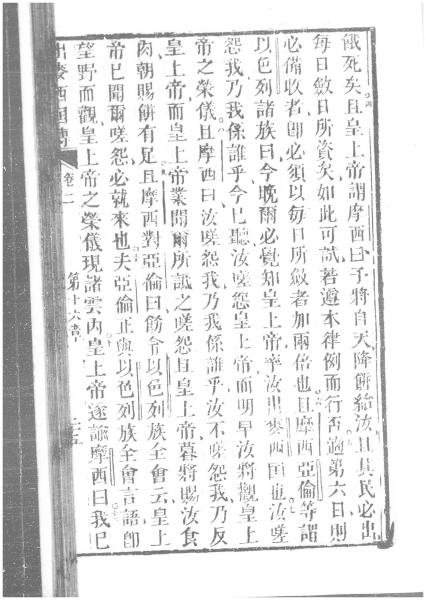 餓死矣且皇上帝謂摩西曰予將自天降餅給汝且其民必出
每日斂日所資矣如此可試若遵本律例而行否適第六日則
必備收者卽必須以每日所斂者加兩倍也且摩西亞倫等謂
以色列諸族曰今晚爾必覺知皇上帝率汝出麥西國也汝嗟
怨我乃我係誰乎今已聽汝嗟怨皇上帝而明早汝將觀皇上
帝之榮儀且摩西曰汝嗟怨我乃我係誰乎汝不嗟怨我乃反
皇上帝而皇上帝業聞爾所諔之嗟怨且皇上帝暮將賜汝食
肉朝賜餅有足且摩西對亞倫曰飭令以色列族全會云皇上
帝已聞爾嗟怨必就來也夫亞倫正與以色列族全會言語卽
望野而觀皇上帝之榮儀現諸雲內皇上帝遂諭摩西曰我已
出麥西國傳 卷二 第十六章